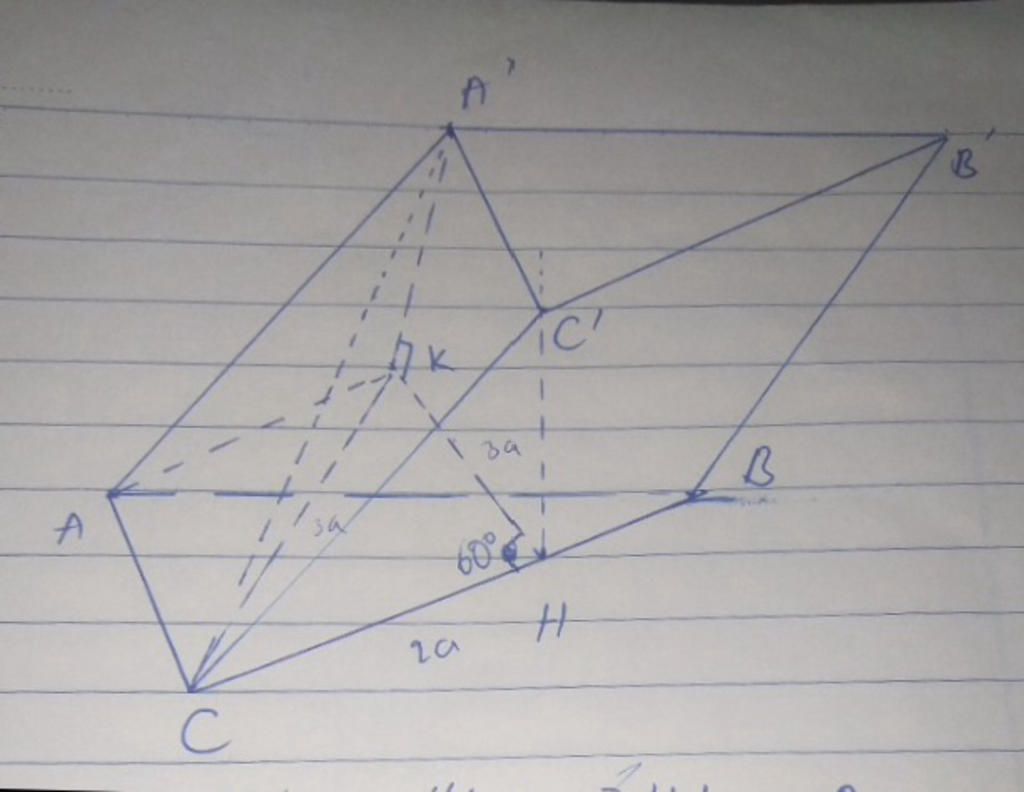 A'
B'
C'
K
3a
B
A
3a
60°
H
2a
C